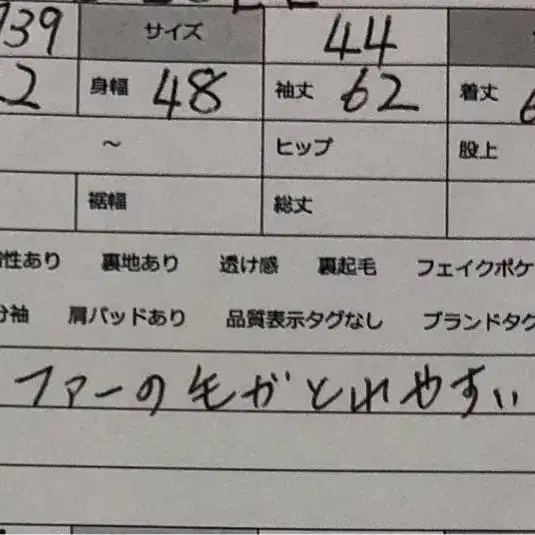 739 サイズ 44
2 身幅 48 袖丈 62 着丈 6
～ ヒップ 股上
裾幅 総丈
性あり 裏地あり 透け感 裏起毛 フェイクポケ
分袖 肩パッドあり 品質表示タグなし ブランドタグ
ファーの毛がとれやすい